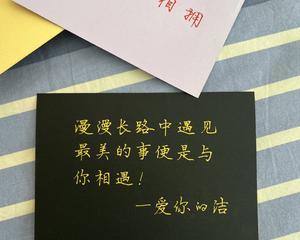 相拥
漫漫长路中遇见
最美的事便是与
你相遇！
—爱你的洁